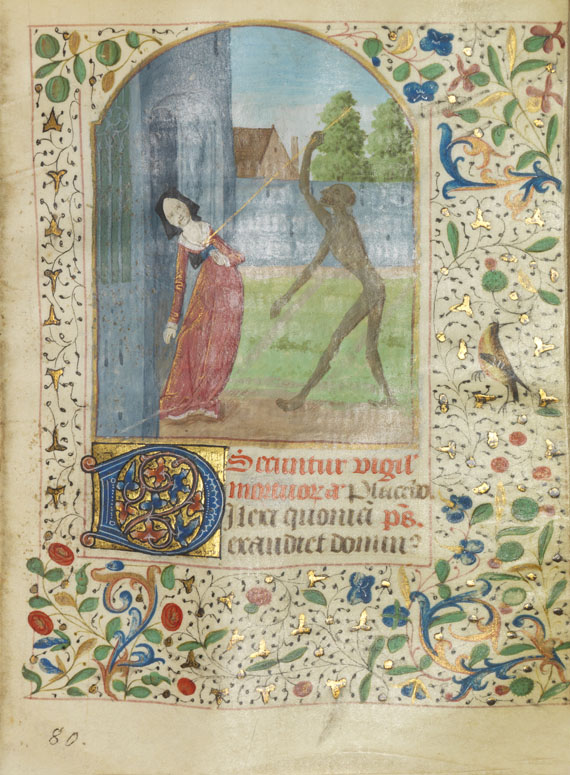 Secuntur vigil'
mortuoꝝ aͣ Placebo.
DIlexi quoniā pˢ.
exaudiet dominꝰ
80.